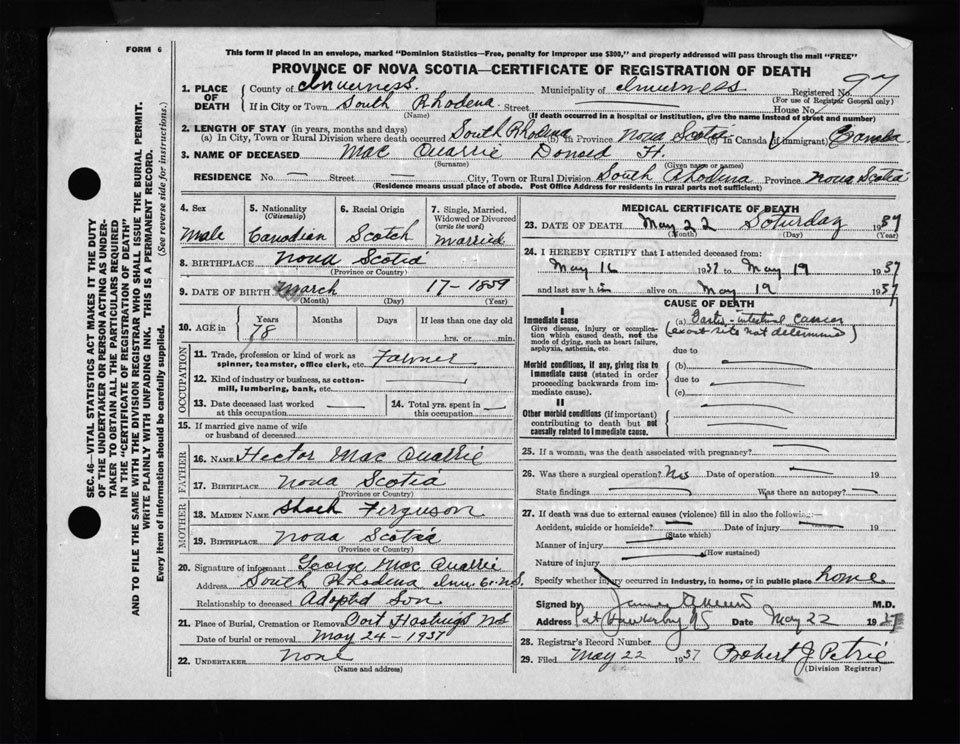 FORM 6
This form if placed in an envelope, marked "Dominion Statistics—Free, penalty for improper use $300," and properly addressed will pass through the mail "FREE"
PROVINCE OF NOVA SCOTIA—CERTIFICATE OF REGISTRATION OF DEATH
SEC. 46—VITAL STATISTICS ACT MAKES IT THE DUTY
OF THE UNDERTAKER OR PERSON ACTING AS UNDER-
TAKER TO OBTAIN ALL THE PARTICULARS REQUIRED
IN THE "CERTIFICATE OF REGISTRATION OF DEATH"
AND TO FILE THE SAME WITH THE DIVISION REGISTRAR WHO SHALL ISSUE THE BURIAL PERMIT.
WRITE PLAINLY WITH UNFADING INK. THIS IS A PERMANENT RECORD.
Every item of information should be carefully supplied.
(See reverse side for instructions.)
1. PLACE OF DEATH
County of Inverness. Municipality of Inverness Registered No. 97
(For use of Registrar General only)
If in City or Town South Rhodena Street House No.
(Name) (If death occurred in a hospital or institution, give the name instead of street and number)
2. LENGTH OF STAY (in years, months and days)
(a) In City, Town or Rural Division where death occurred South Rhodena (b) In Province Nova Scotia (c) In Canada (if immigrant) Canada
3. NAME OF DECEASED Mac Quarrie Donald H.
(Surname) (Given name or names)
RESIDENCE No. — Street — City, Town or Rural Division South Rhodena Province Nova Scotia
(Residence means usual place of abode. Post Office Address for residents in rural parts not sufficient)
4. Sex Male
5. Nationality (Citizenship) Canadian
6. Racial Origin Scotch
7. Single, Married, Widowed or Divorced (write the word) married
8. BIRTHPLACE Nova Scotia
(Province or Country)
9. DATE OF BIRTH March 17-1859
(Month) (Day) (Year)
10. AGE in Years 78 Months Days If less than one day old
hrs. or min.
OCCUPATION
11. Trade, profession or kind of work as spinner, teamster, office clerk, etc. Farmer
12. Kind of industry or business, as cotton-mill, lumbering, bank, etc.
13. Date deceased last worked at this occupation
14. Total yrs. spent in this occupation
15. If married give name of wife or husband of deceased
FATHER
16. NAME Hector Mac Quarrie
17. BIRTHPLACE Nova Scotia
(Province or Country)
MOTHER
18. MAIDEN NAME Ferguson
19. BIRTHPLACE Nova Scotia
(Province or Country)
20. Signature of informant George Mac Quarrie
Address South Rhodena Inv. Co. N.S.
Relationship to deceased Adopted Son
21. Place of Burial, Cremation or Removal Port Hastings NS
Date of burial or removal May 24-1937
22. UNDERTAKER None
(Name and address)
MEDICAL CERTIFICATE OF DEATH
23. DATE OF DEATH May 22 Saturday 1937
(Month) (Day) (Year)
24. I HEREBY CERTIFY that I attended deceased from:
May 16 1937 to May 19 1937
and last saw him alive on May 19 1937
CAUSE OF DEATH
I
Immediate cause
Give disease, injury or complication which caused death, not the mode of dying, such as heart failure, asphyxia, asthenia, etc.
(a) Gastro-intestinal Cancer
(exact site not determined)
due to
Morbid conditions, if any, giving rise to immediate cause (stated in order proceeding backwards from immediate cause).
(b)
due to
(c)
II
Other morbid conditions (if important) contributing to death but not causally related to immediate cause.
25. If a woman, was the death associated with pregnancy?
26. Was there a surgical operation? No Date of operation 19
State findings Was there an autopsy?
27. If death was due to external causes (violence) fill in also the following:—
Accident, suicide or homicide? Date of injury 19
(State which)
Manner of injury
(How sustained)
Nature of injury
Specify whether injury occurred in industry, in home, or in public place home
Signed by M.D.
Address Pt Hawkesbury NS Date May 22 1937
28. Registrar's Record Number
29. Filed May 22 1937 Robert J Petrie
(Division Registrar)